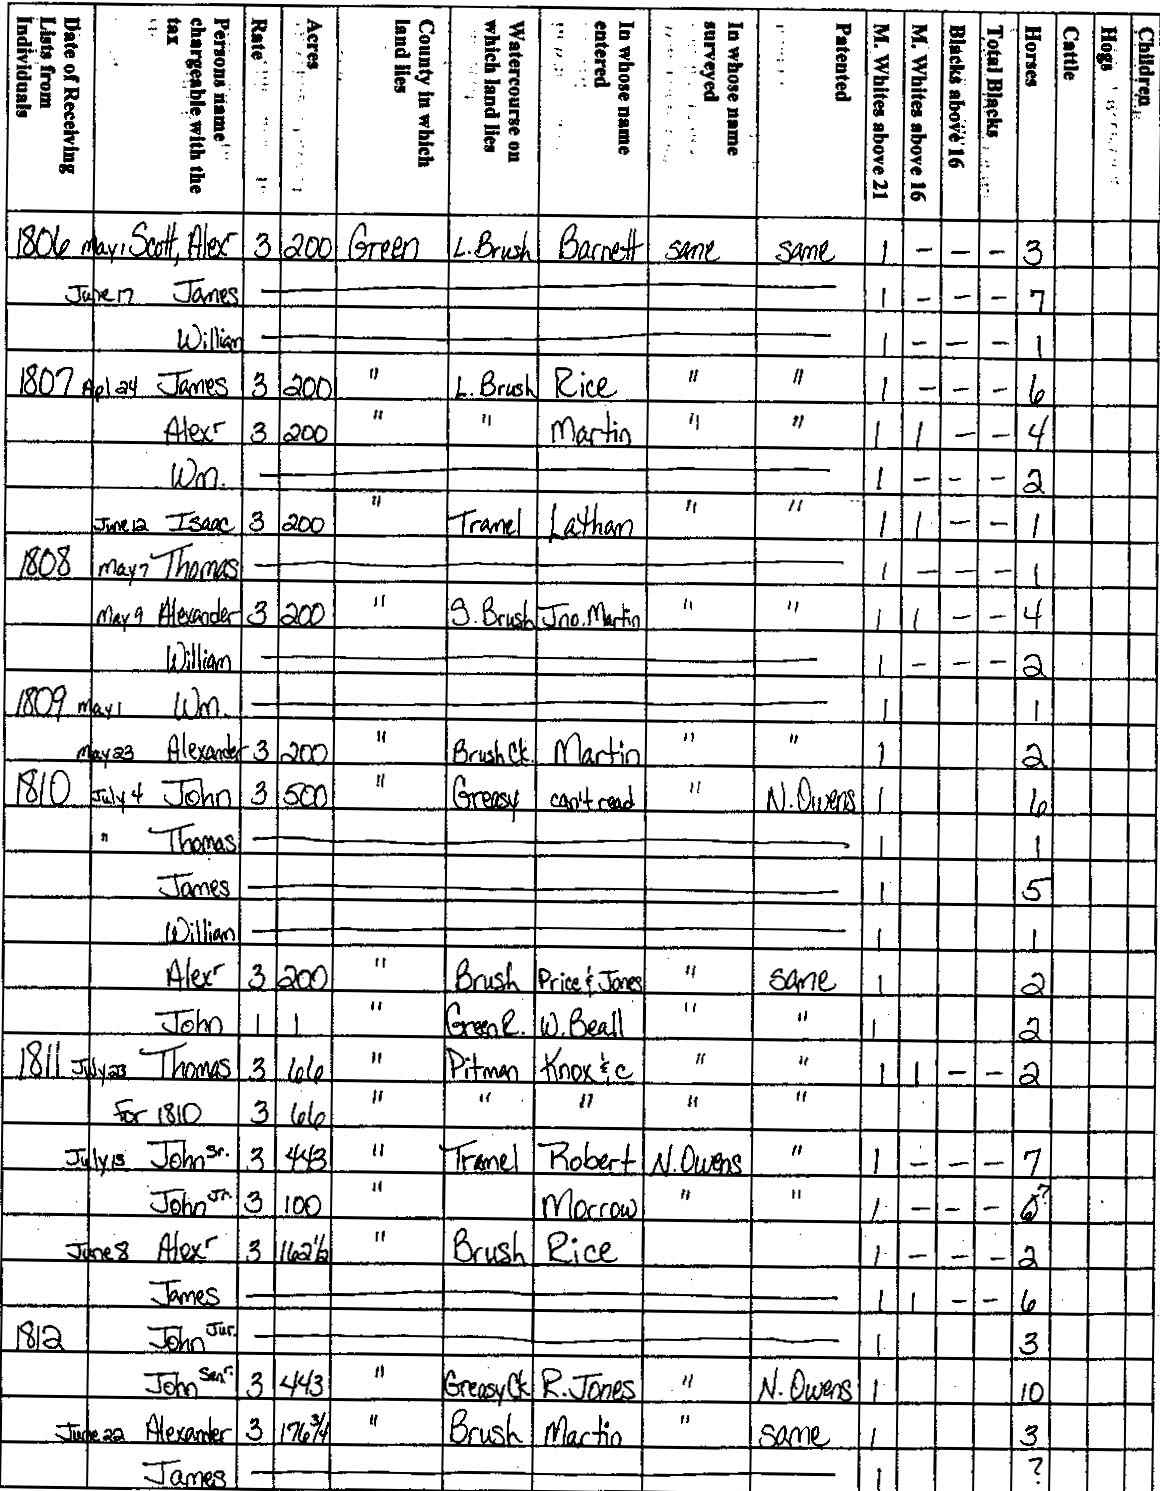 Date of Receiving Lists from Individuals | Persons name chargeable with the tax | Rate | Acres | County in which land lies | Watercourse on which land lies | In whose name entered | In whose name surveyed | Patented | M. Whites above 21 | M. Whites above 16 | Blacks above 16 | Total Blacks | Horses | Cattle | Hogs | Children
1806 May 1 Scott, Alexr 3 200 Green L. Brush Barnett same same 1 - - - 3
June 17 James 1 - - - 7
William 1 - - - 1
1807 Apl 24 James 3 200 " L. Brush Rice " " 1 - - - 6
Alexr 3 200 " " Martin " " 1 1 - - 4
Wm. 1 - - - 2
June 12 Isaac 3 200 " Tramel Latham " " 1 1 - - 1
1808 May 7 Thomas 1 - - - 1
May 9 Alexander 3 200 " S. Brush Jno. Martin " " 1 1 - - 4
William 1 - - - 2
1809 May 1 Wm. 1 1
May 23 Alexander 3 200 " Brush Ck. Martin " " 1 2
1810 July 4 John 3 500 " Greasy can't read " N. Owens 1 6
" Thomas 1 1
James 1 5
William 1 1
Alexr 3 200 " Brush Price & Jones " same 1 2
John 1 1 " Green R. W. Beall " " 1 2
1811 July 23 Thomas 3 66 " Pitman Knox & c " " 1 1 - - 2
for 1810 3 66 " " " " "
July 15 John Sr. 3 443 " Tramel Robert N. Owens " 1 - - - 7
John Jr. 3 100 " Morrow " " 1 - - - 6?
June 8 Alexr 3 162 1/2 " Brush Rice 1 - - - 2
James 1 1 - - 6
1812 John Jur. 1 3
John Senr. 3 443 " Greasy Ck R. Jones " N. Owens 1 10
June 22 Alexander 3 176 3/4 " Brush Martin " same 1 3
James 1 ?